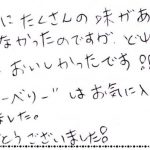 に たくさんの 味があ
なかったのですが、どれ
おいしかったです!!
ーベリー" はお気に入
した。
とうございました。